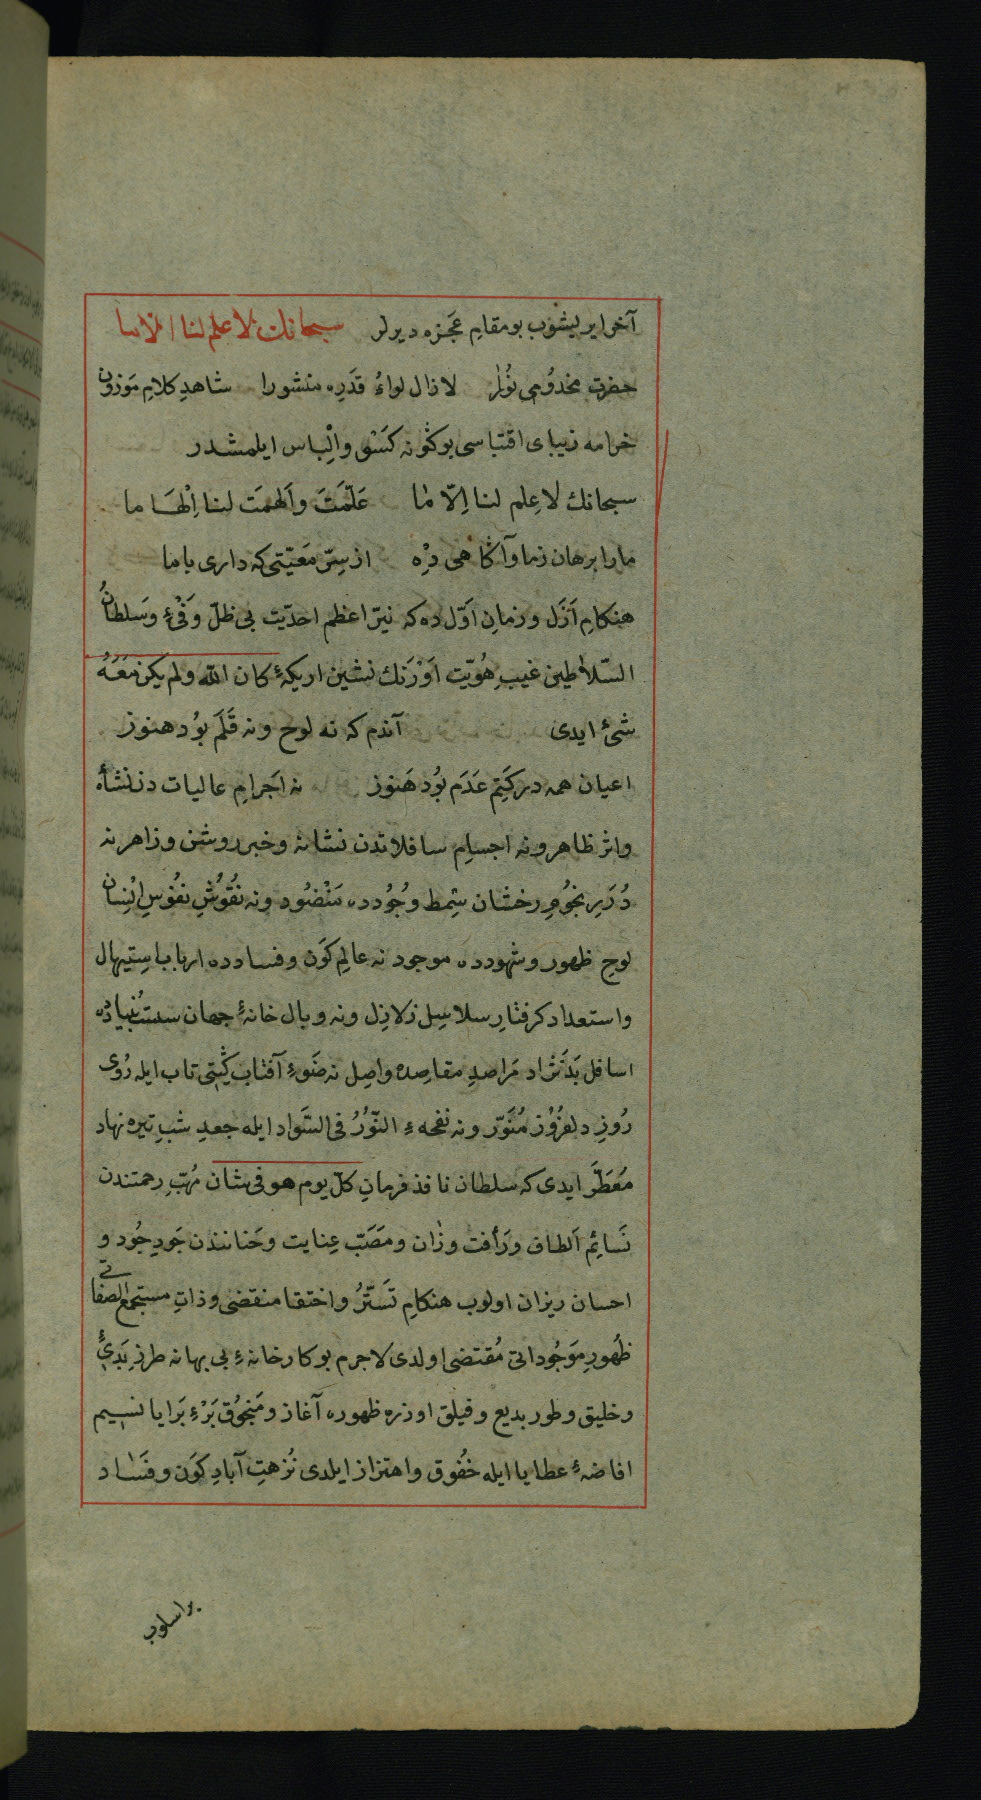 آخر ایریشوب بو مقایم عجزه دیرلر سبحانك لا علم لنا الا ما
حضرت مخدومی نورلر لا زال لواءُ قدَرِه منشورا شاهدِ کلامِ موزون
خرامه زیبای اقتباسی بو کونه کسَق والِباس ایلمشدر
سبحانك لا عِلم لنا اِلّا مٰا عَلّمَتَ واَلهمتَ لنا اِلْهَاما
مارا برهان زما وآکاهی دِه از سِرّ مَعیّتی که داری باما
هنکامِ اَزَل و زمانِ اَوّلده که نیّر اعظم احدّیت بی ظلّ وَفَیْءِ وسَلطانُ
السّلاطین غیبِ هُویّت اَوْرَنك نشین اریکهٔ کان الله ولم یکن مَعَهُ
شئ ایدی آندم که نه لوح ونه قَلَم بوُد هنوز
اعیان همه در کَتِم عَدَم بوُد هَنوز نه اَجرامِ عالیات دن نشأه
واثر ظاهر ونه اجسامِ سافلاتدن نشانه وخبر روشن وزاهر نه
دُرَرِ نجُومِ رخشان سِمط وجُودده مَنْضُود ونه نقُوُشِ نفُوْسِ اِنْسِان
لوحِ ظهور وشهودده موجود نه عالِمِ کَوَن وفسادده اربابِ استیهال
واستعداد کرفتارِ سلاسِل زلازِل ونه وبال خانهٔ جهان سست بُنیاده
اسافل بَدْنَژاد مَراصدِ مقاصده واصِل نه ضَوءِ آفتاب کیتی تاب ایله رُوی
رُوزِ دلفزُوْز مُنَوّر ونه نفحهء النّوُرُ فی السّواد ایله جعدِ شبِ تیره نهاد
مَعَطَّر ایدی که سلطان نافذ فرمانِ کلّ یوم هو فی شان مُهبّ رحمتندن
نَسایُمِ اَلطاف ورَأفت وزٰان ومَصَبّ عِنایت وحَنانندن جَودِ جُود و
احسان ریزان اولوب هنکامِ تَستّرُ واختفا منقضی وذاتِ مستجمع الصفاتی
ظُهورِ مَوجُوداتی مُقتضی اولدی لاجرم بو کارخانهءِ بی بهانه طرزِ بَدِئُ
وخلیق وطور بدیع وفیلق اوزره ظهوره آغاز ومَنجُوُق بَرْءِ بَرایا نسیم
افاضهٔ عطایا ایله خُفُوق واهتزاز ایلدی نُزهتِ آبادِ کَوَن وفسَٰاد
بر اسلوب